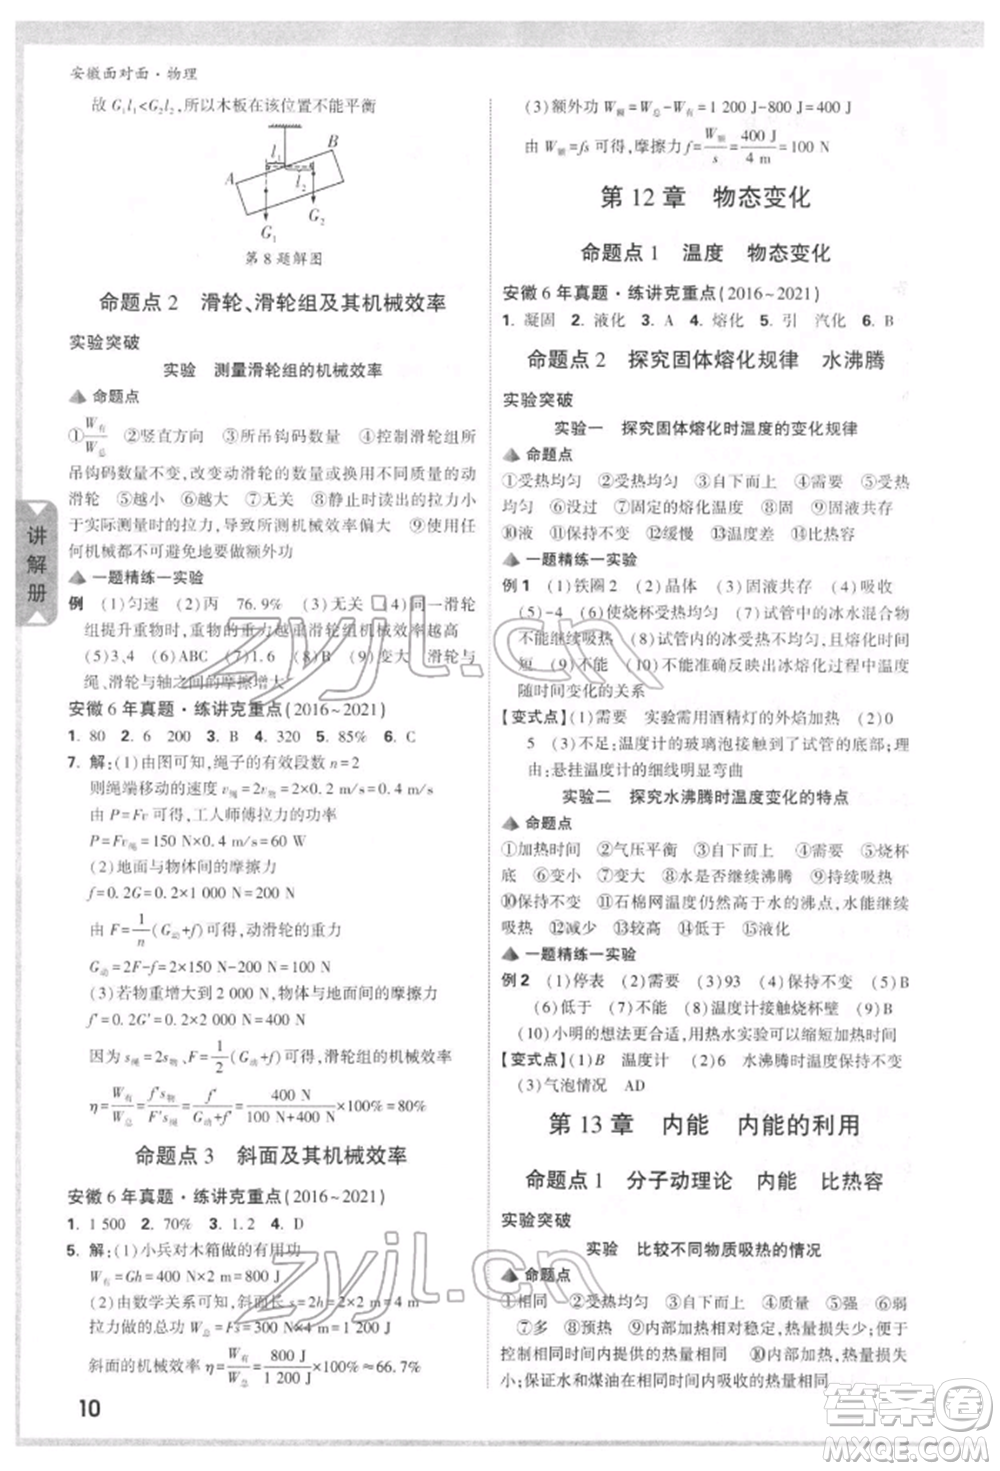 安徽面对面·物理
故 G₁l₁<G₂l₂,所以木板在该位置不能平衡
l₁
B
A
l₂
G₂
G₁
第8题解图
命题点2 滑轮、滑轮组及其机械效率
实验突破
实验 测量滑轮组的机械效率
命题点
①W有/W总 ②竖直方向 ③所吊钩码数量 ④控制滑轮组所
吊钩码数量不变,改变动滑轮的数量或换用不同质量的动
滑轮 ⑤越小 ⑥越大 ⑦无关 ⑧静止时读出的拉力小
于实际测量时的拉力,导致所测机械效率偏大 ⑨使用任
何机械都不可避免地要做额外功
一题精练一实验
例 (1)匀速 (2)丙 76.9% (3)无关 (4)同一滑轮
组提升重物时,重物的重力越重滑轮组机械效率越高
(5)3、4 (6)ABC (7)1.6 (8)B (9)变大 滑轮与
绳、滑轮与轴之间的摩擦增大
安徽6年真题·练讲克重点(2016~2021)
1. 80 2. 6 200 3. B 4. 320 5. 85% 6. C
7. 解:(1)由图可知,绳子的有效段数 n=2
则绳端移动的速度 v绳=2v物=0.4 m/s
由 P=Fv可得,工人师傅拉力的功率
P=Fv绳=150 N×0.4 m/s=60 W
(2)地面与物体间的摩擦力
f=0.2G=0.2×1 000 N=200 N
由 F=1/n(G动+f)可得,动滑轮的重力
G动=2F-f=2×150 N-200 N=100 N
(3)若物重增大到 2 000 N,物体与地面间的摩擦力
f'=0.2G'=0.2×2 000 N=400 N
因为 s绳=2s物、F=1/2(G动+f)可得,滑轮组的机械效率
η=W有/W总=f's物/F's绳=f'/(G动+f')=400 N/(100 N+400 N)×100%=80%
命题点3 斜面及其机械效率
安徽6年真题·练讲克重点(2016~2021)
1. 1 500 2. 70% 3. 1.2 4. D
5. 解:(1)小兵对木箱做的有用功
W有=Gh=400 N×2 m=800 J
(2)由数学关系可知,斜面长 s=2h=2×2 m=4 m
拉力做的总功 W总=Fs=300 N×4 m=1 200 J
斜面的机械效率 η=W有/W总=800 J/1 200 J×100%≈66.7%
10
讲解册
(3)额外功 W额=W总-W有=1 200 J-800 J=400 J
由 W额=fs 可得,摩擦力 f=W额/s=400 J/4 m=100 N
第12章 物态变化
命题点1 温度 物态变化
安徽6年真题·练讲克重点(2016~2021)
1. 凝固 2. 液化 3. A 4. 熔化 5. 引 汽化 6. B
命题点2 探究固体熔化规律 水沸腾
实验突破
实验一 探究固体熔化时温度的变化规律
命题点
①受热均匀 ②受热均匀 ③自下而上 ④缓慢 ⑤受
热均匀 ⑥没过 ⑦固定的熔化温度 ⑧固 ⑨固液共存
⑩液 ⑪保持不变 ⑫缓慢 ⑬温度差 ⑭内能
一题精练一实验
例1 (1)铁圈2 (2)晶体 (3)固液共存 (4)吸收
(5)-4 (6)使烧杯受热均匀 (7)试管中的冰水混合物
不能继续吸热 (8)试管内的冰受热不均匀,且熔化时间
短 (9)不能 (10)不能精确反映出冰熔化过程中温度
随时间变化的关系
【变式点】(1)需要 实验需用酒精灯的外焰加热 (2)0
5 (3)不足:温度计的玻璃泡接触到了试管的底部;理
由:悬挂温度计的细线明显弯曲
实验二 探究水沸腾时温度变化的特点
命题点
①加热时间 ②气压平衡 ③自下而上 ④停表 ⑤烧杯
底 ⑥不变 ⑦变大 ⑧水是否继续沸腾 ⑨持续吸热
⑩保持不变 ⑪石棉网温度仍然高于水的沸点,水能继续
吸热 ⑫减少 ⑬较高 ⑭偏大
一题精练一实验
例2 (1)停表 (2)需要 (3)93 (4)保持不变 (5)B
(6)低于 (7)不能 (8)温度计接触烧杯壁 (9)B
(10)小明的想法更合适,用热水实验可以缩短加热时间
【变式点】(1)B 温度计 (2)6 水沸腾时温度保持不变
(3)气泡情况 AD
第13章 内能 内能的利用
命题点1 分子动理论 内能 比热容
实验突破
实验 比较不同物质吸热的情况
命题点
①相同 ②受热均匀 ③自下而上 ④质量 ⑤强 ⑥弱
⑦多 ⑧预热 ⑨内部加热,热量相对稳定,热量损失少;便于
控制相同时间内提供的热量相同 ⑩内部加热,热量损失
小;保证水和煤油在相同时间内吸收的热量相同
zyjl.cn
zyjl.cn
答案圈
MXQE.COM